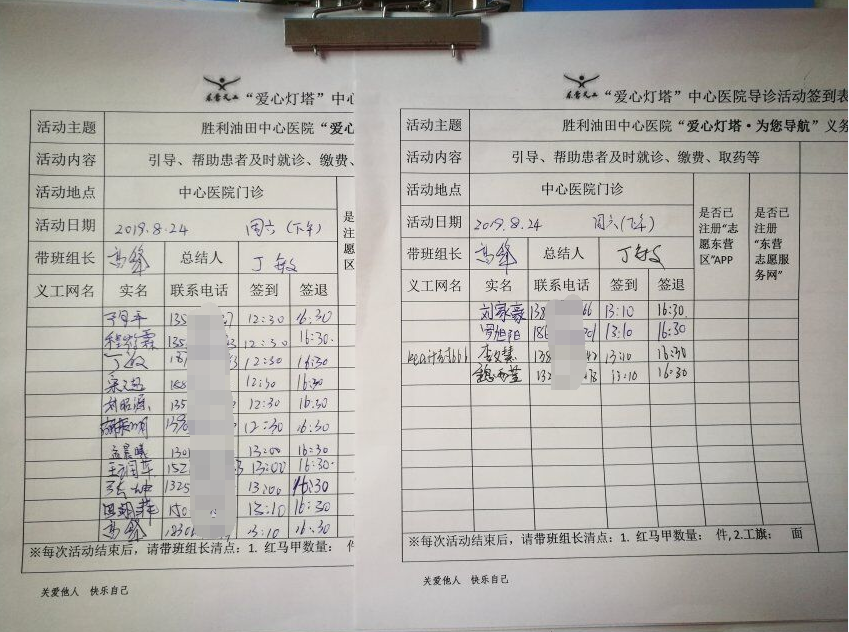 东营义工 “爱心灯塔”中心
活动主题 胜利油田中心医院“爱心
活动内容 引导、帮助患者及时就诊、缴费、
活动地点 中心医院门诊
活动日期 2019.8.24 周六(下午)
是
注
愿
区
带班组长 高峰 总结人 丁敏
义工网名 实名 联系电话 签到 签退
135 12:30 16:30
程 135 12:30 16:30
丁敏 12:30 16:30
12:30 16:30
135 12:30 16:30
12:30 16:30
孟晨曦 130 13:00 16:30
152 13:00 16:30
1325 13:00 16:30
150 13:10 16:30
高峰 13:10 16:30
※每次活动结束后，请带班组长清点：1. 红马甲数量： 件
关爱他人 快乐自己
东营义工 “爱心灯塔”中心医院导诊活动签到表
活动主题 胜利油田中心医院“爱心灯塔·为您导航”义务
活动内容 引导、帮助患者及时就诊、缴费、取药等
活动地点 中心医院门诊
活动日期 2019.8.24 周六(下午)
是否已
注册“志
愿东营
区”APP
是否已
注册
“东营
志愿服
务网”
带班组长 高峰 总结人 丁敏
义工网名 实名 联系电话 签到 签退
刘家豪 138 66 13:10 16:30
罗旭阳 186 201 13:10 16:30
李文慧 138 42 13:10 16:30
132 13:10 16:30
※每次活动结束后，请带班组长清点：1. 红马甲数量： 件,2.工旗： 面
关爱他人 快乐自己